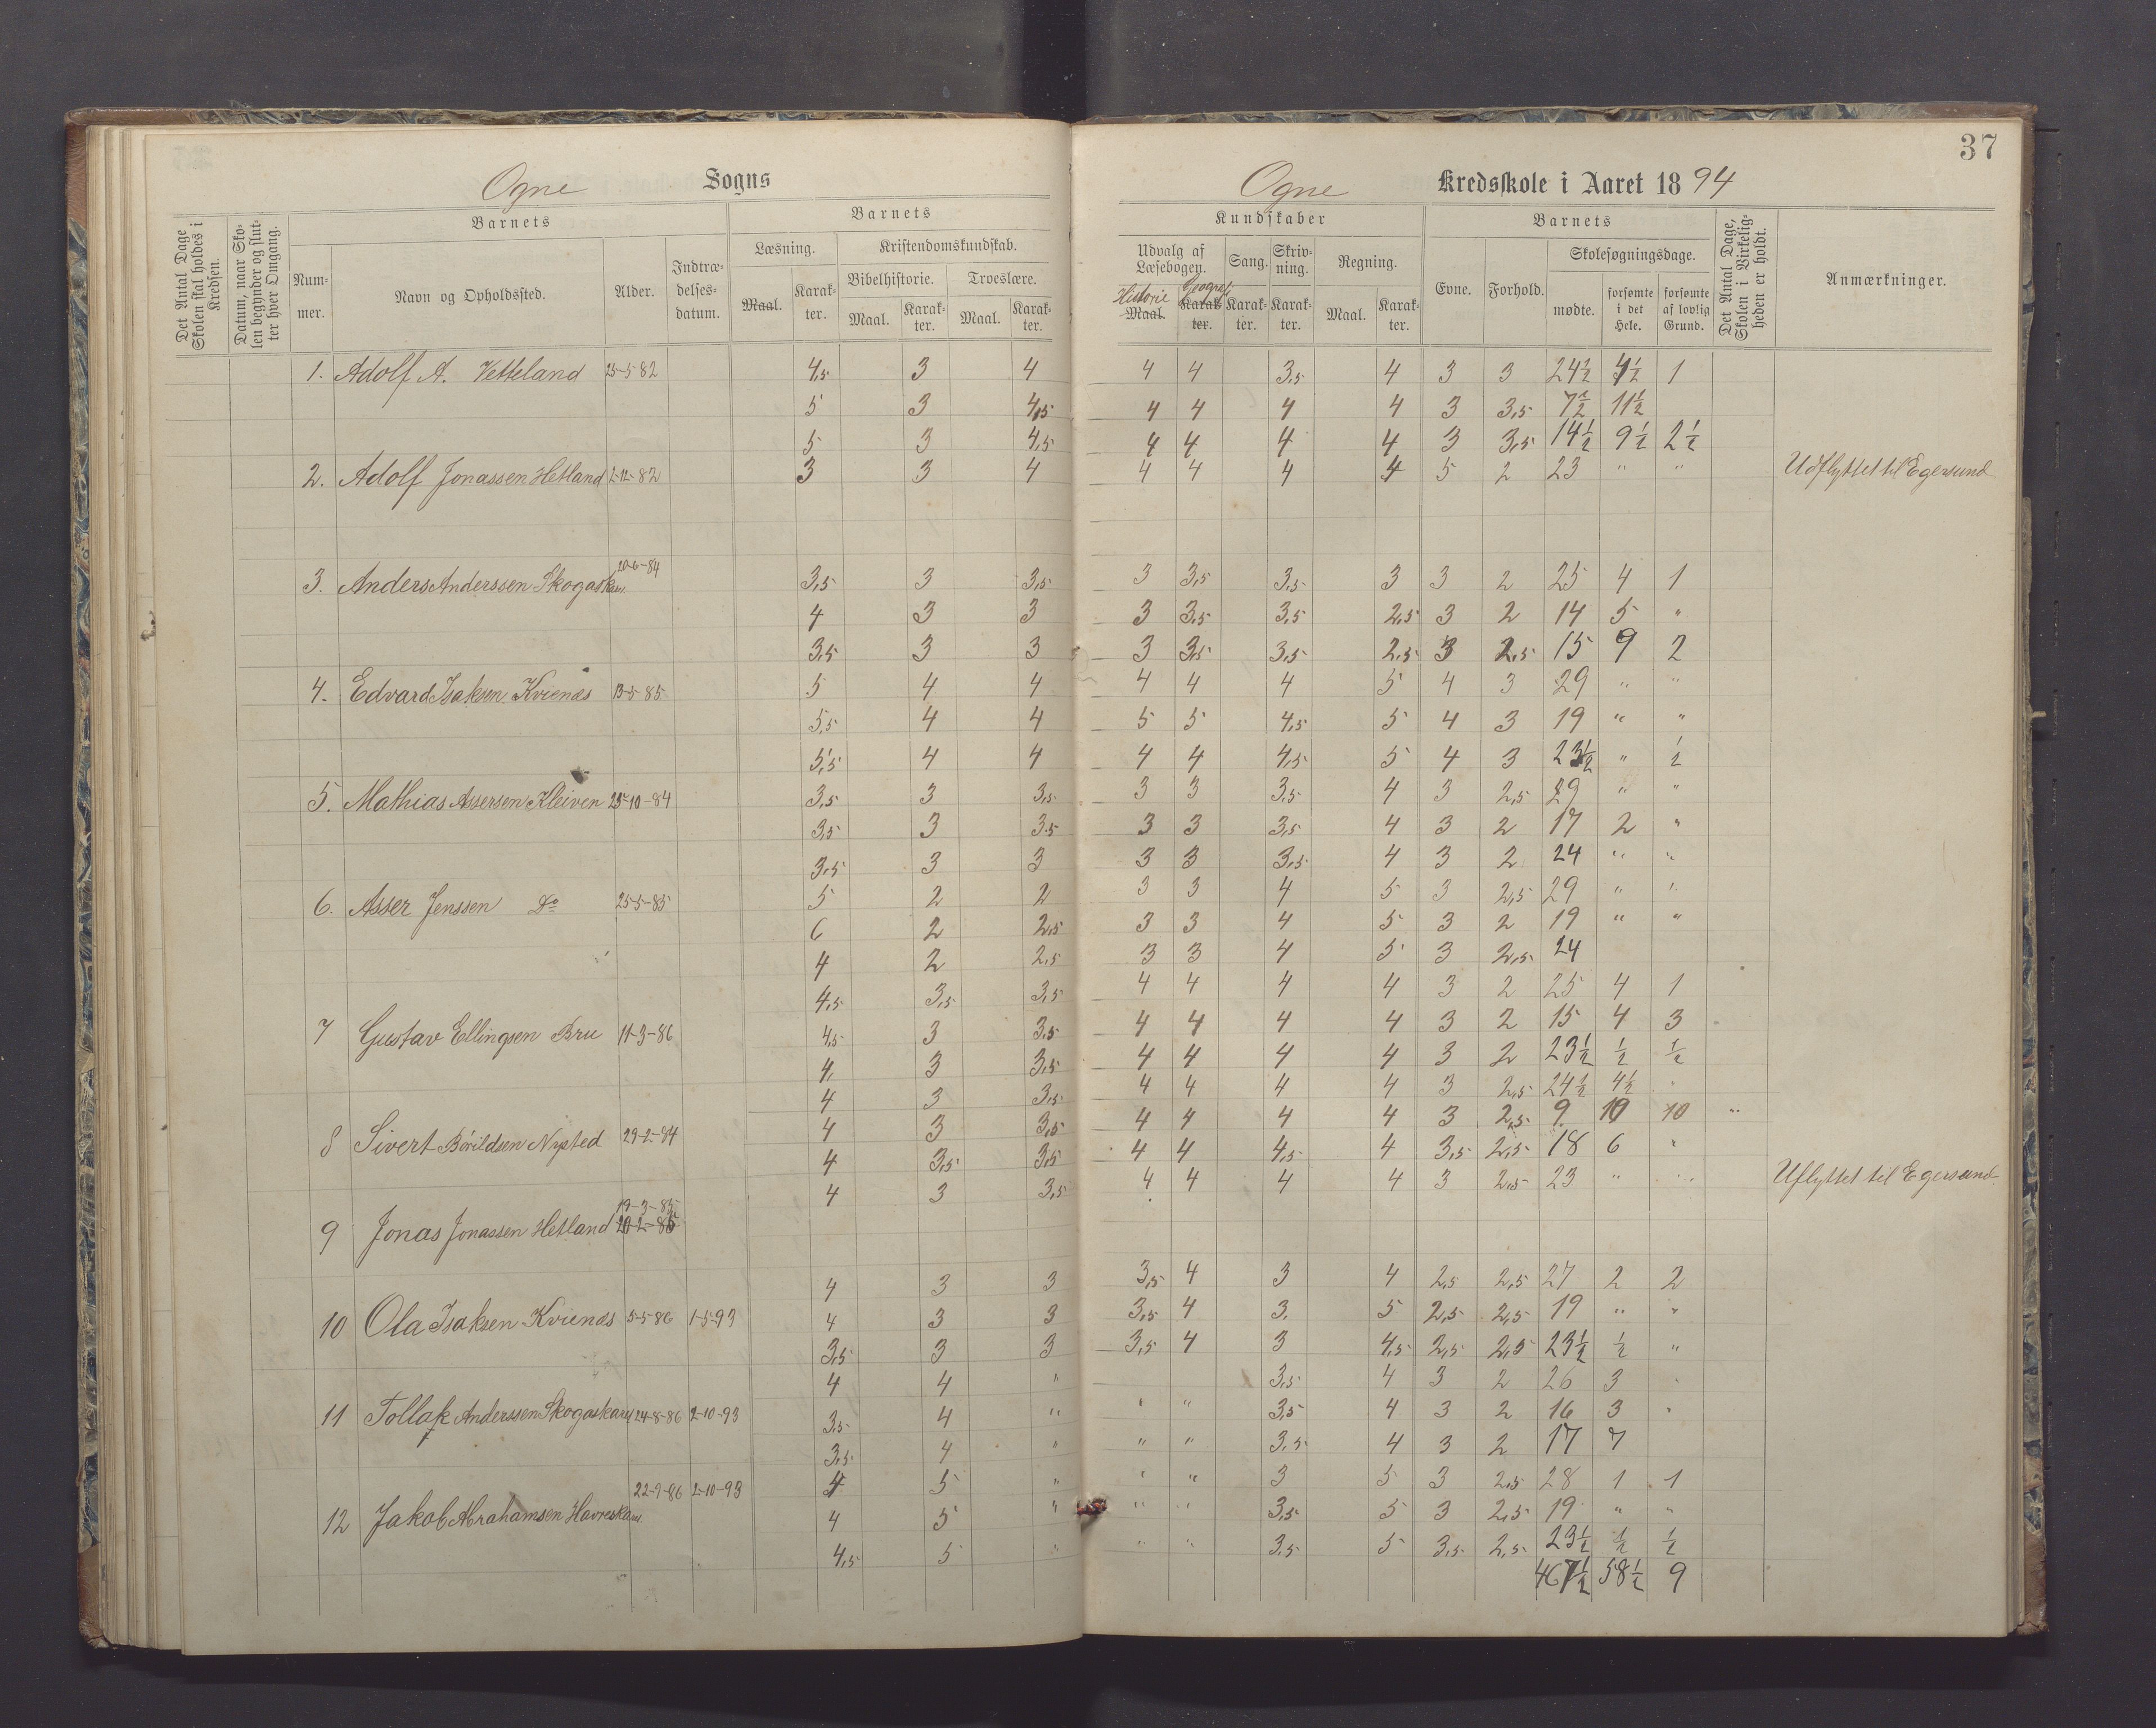 37
Ogne Sogns Ogne Kredsskole i Aaret 1894
Det Antal Dage Skolen skal holdes i Kredsen.
Datum, naar Skolen begynder og slutter hver Omgang.
Barnets
Nummer.
Navn og Opholdssted.
Alder.
Indtrædelsesdatum.
Barnets
Læsning.
Maal.
Karakter.
Kristendomskundskab.
Bibelhistorie.
Maal.
Karakter.
Troeslære.
Maal.
Karakter.
Kundskaber
Udvalg af Læsebogen.
Historie
Maal.
Geograf.
Karakter.
Sang.
Karakter.
Skrivning.
Karakter.
Regning.
Maal.
Karakter.
Barnets
Evne.
Forhold.
Skolesøgningsdage.
mødte.
forsømte i det Hele.
forsømte af lovlig Grund.
Det Antal Dage, Skolen i Virkeligheden er holdt.
Anmærkninger.
1. Adolf A. Vetteland 25-5 82 4,5 3 4 4 4 3,5 4 3 3 24½ 4½ 1
5 3 4,5 4 4 4 4 3 3,5 7½ 11½
5 3 4,5 4 4 4 4 3 3,5 14½ 9½ 2½
2. Adolf Jonassen Hetland 2-12-82 3 3 4 4 4 4 4 5 2 23 " " Udflyttet til Egersund
3. Anders Anderssen Skogaskar 20-6-84 3,5 3 3,5 3 3,5 3,5 3 3 2 25 4 1
4 3 3 3 3,5 3,5 2,5 3 2 14 5 "
3,5 3 3 3 3,5 3,5 2,5 3 2,5 15 9 2
4. Edvard Isaksen Kvienes 13-5-85 5 4 4 4 4 4 5 4 3 29 " "
5,5 4 4 5 5 4,5 5 4 3 19 " "
5,5 4 4 4 4 4,5 5 4 3 23½ " ½
5. Mathias Assersen Kleiven 25-10-84 3,5 3 3,5 3 3 3,5 4 3 2,5 29 " "
3,5 3 3,5 3 3 3,5 4 3 2 17 2 "
3,5 3 3 3 3 3,5 4 3 2 24 " "
6. Asser Jenssen Do 25-5-85 5 2 2 3 3 4 5 3 2,5 29 " "
6 2 2,5 3 3 4 5 3 2 19 " "
4 2 2,5 3 3 4 5 3 2,5 24
4,5 3,5 3,5 4 4 4 4 3 2 25 4 1
7 Gustav Ellingsen Bru 11-3-86 4,5 3 3,5 4 4 4 4 3 2 15 4 3
4, 3 3,5 4 4 4 4 3 2 23½ ½ ½
4 3 3,5 4 4 4 4 3 2,5 24½ 4½ "
8 Sivert Bårildsen Nysted 29-2-84 4 3 3,5 4 4 4 4 3 2,5 9 10 10 "
4 3,5 3,5 4 4 4,5 4 3,5 2,5 18 6 "
4 3 3,5 4 4 4 4 3 2,5 23 " " Uflyttet til Egersund
19-3-85
9 Jonas Jonassen Hetland 20-2-86
4 3 3 3,5 4 3 4 2,5 2,5 27 2 2
10 Ola Isaksen Kvienes 5-5-86 1-5-93 4 3 3 3,5 4 3. 5 2,5 2,5 19 " "
3,5 3 3 3,5 4 3 4,5 2,5 2,5 23½ ½ "
4 4 " 3,5 4 3 2 26 3 "
11 Tollak Anderssen Skogaskar 24-8-86 2-10-93 3,5 4 " " " 3,5 4 3 2 16 3 "
3,5 4 " " " 3,5 4 3 2 17 7
4 5 " " " 3 5 3 2,5 28 1 1
12 Jakob Abrahamsen Havreskar 22-9-86 2-10-93 4 5 " " " 3,5 5 3 2,5 19 " "
4,5 5 " " " 3,5 5 3,5 2,5 23½ ½ ½
467½ 58½ 9